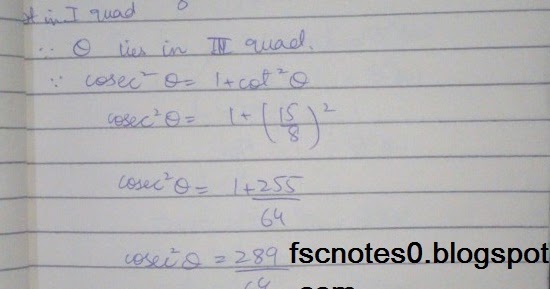 in I quad
∴ θ lies in III quad.
∵ cosec² θ = 1+cot²θ
cosec²θ = 1+(15/8)²
cosec²θ = 1+255/64
cosec²θ = 289
fscnotes0.blogspot
com